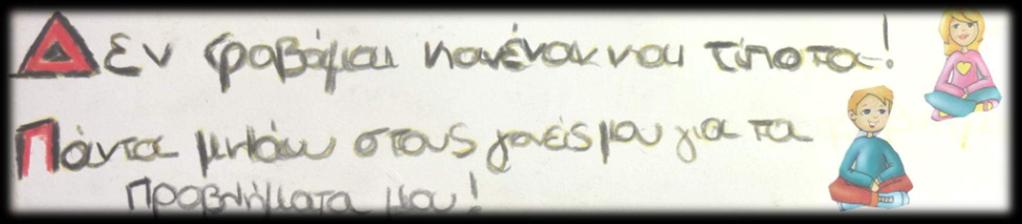 Δεν φοβάμαι κανέναν και τίποτα!
Πάντα μιλάω στους γονείς μου για τα
προβλήματα μου!